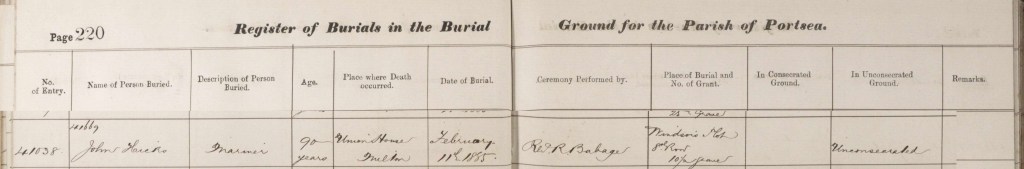 Page 220 Register of Burials in the Burial Ground for the Parish of Portsea.
No. of Entry. Name of Person Buried. Description of Person Buried. Age. Place where Death occurred. Date of Burial. Ceremony Performed by. Place of Burial and No. of Grant. In Consecrated Ground. In Unconsecrated Ground. Remarks.
Grave
John Mariner 90 Union House February Row
41038 years Milton 11th Revd R. Unconsecrated